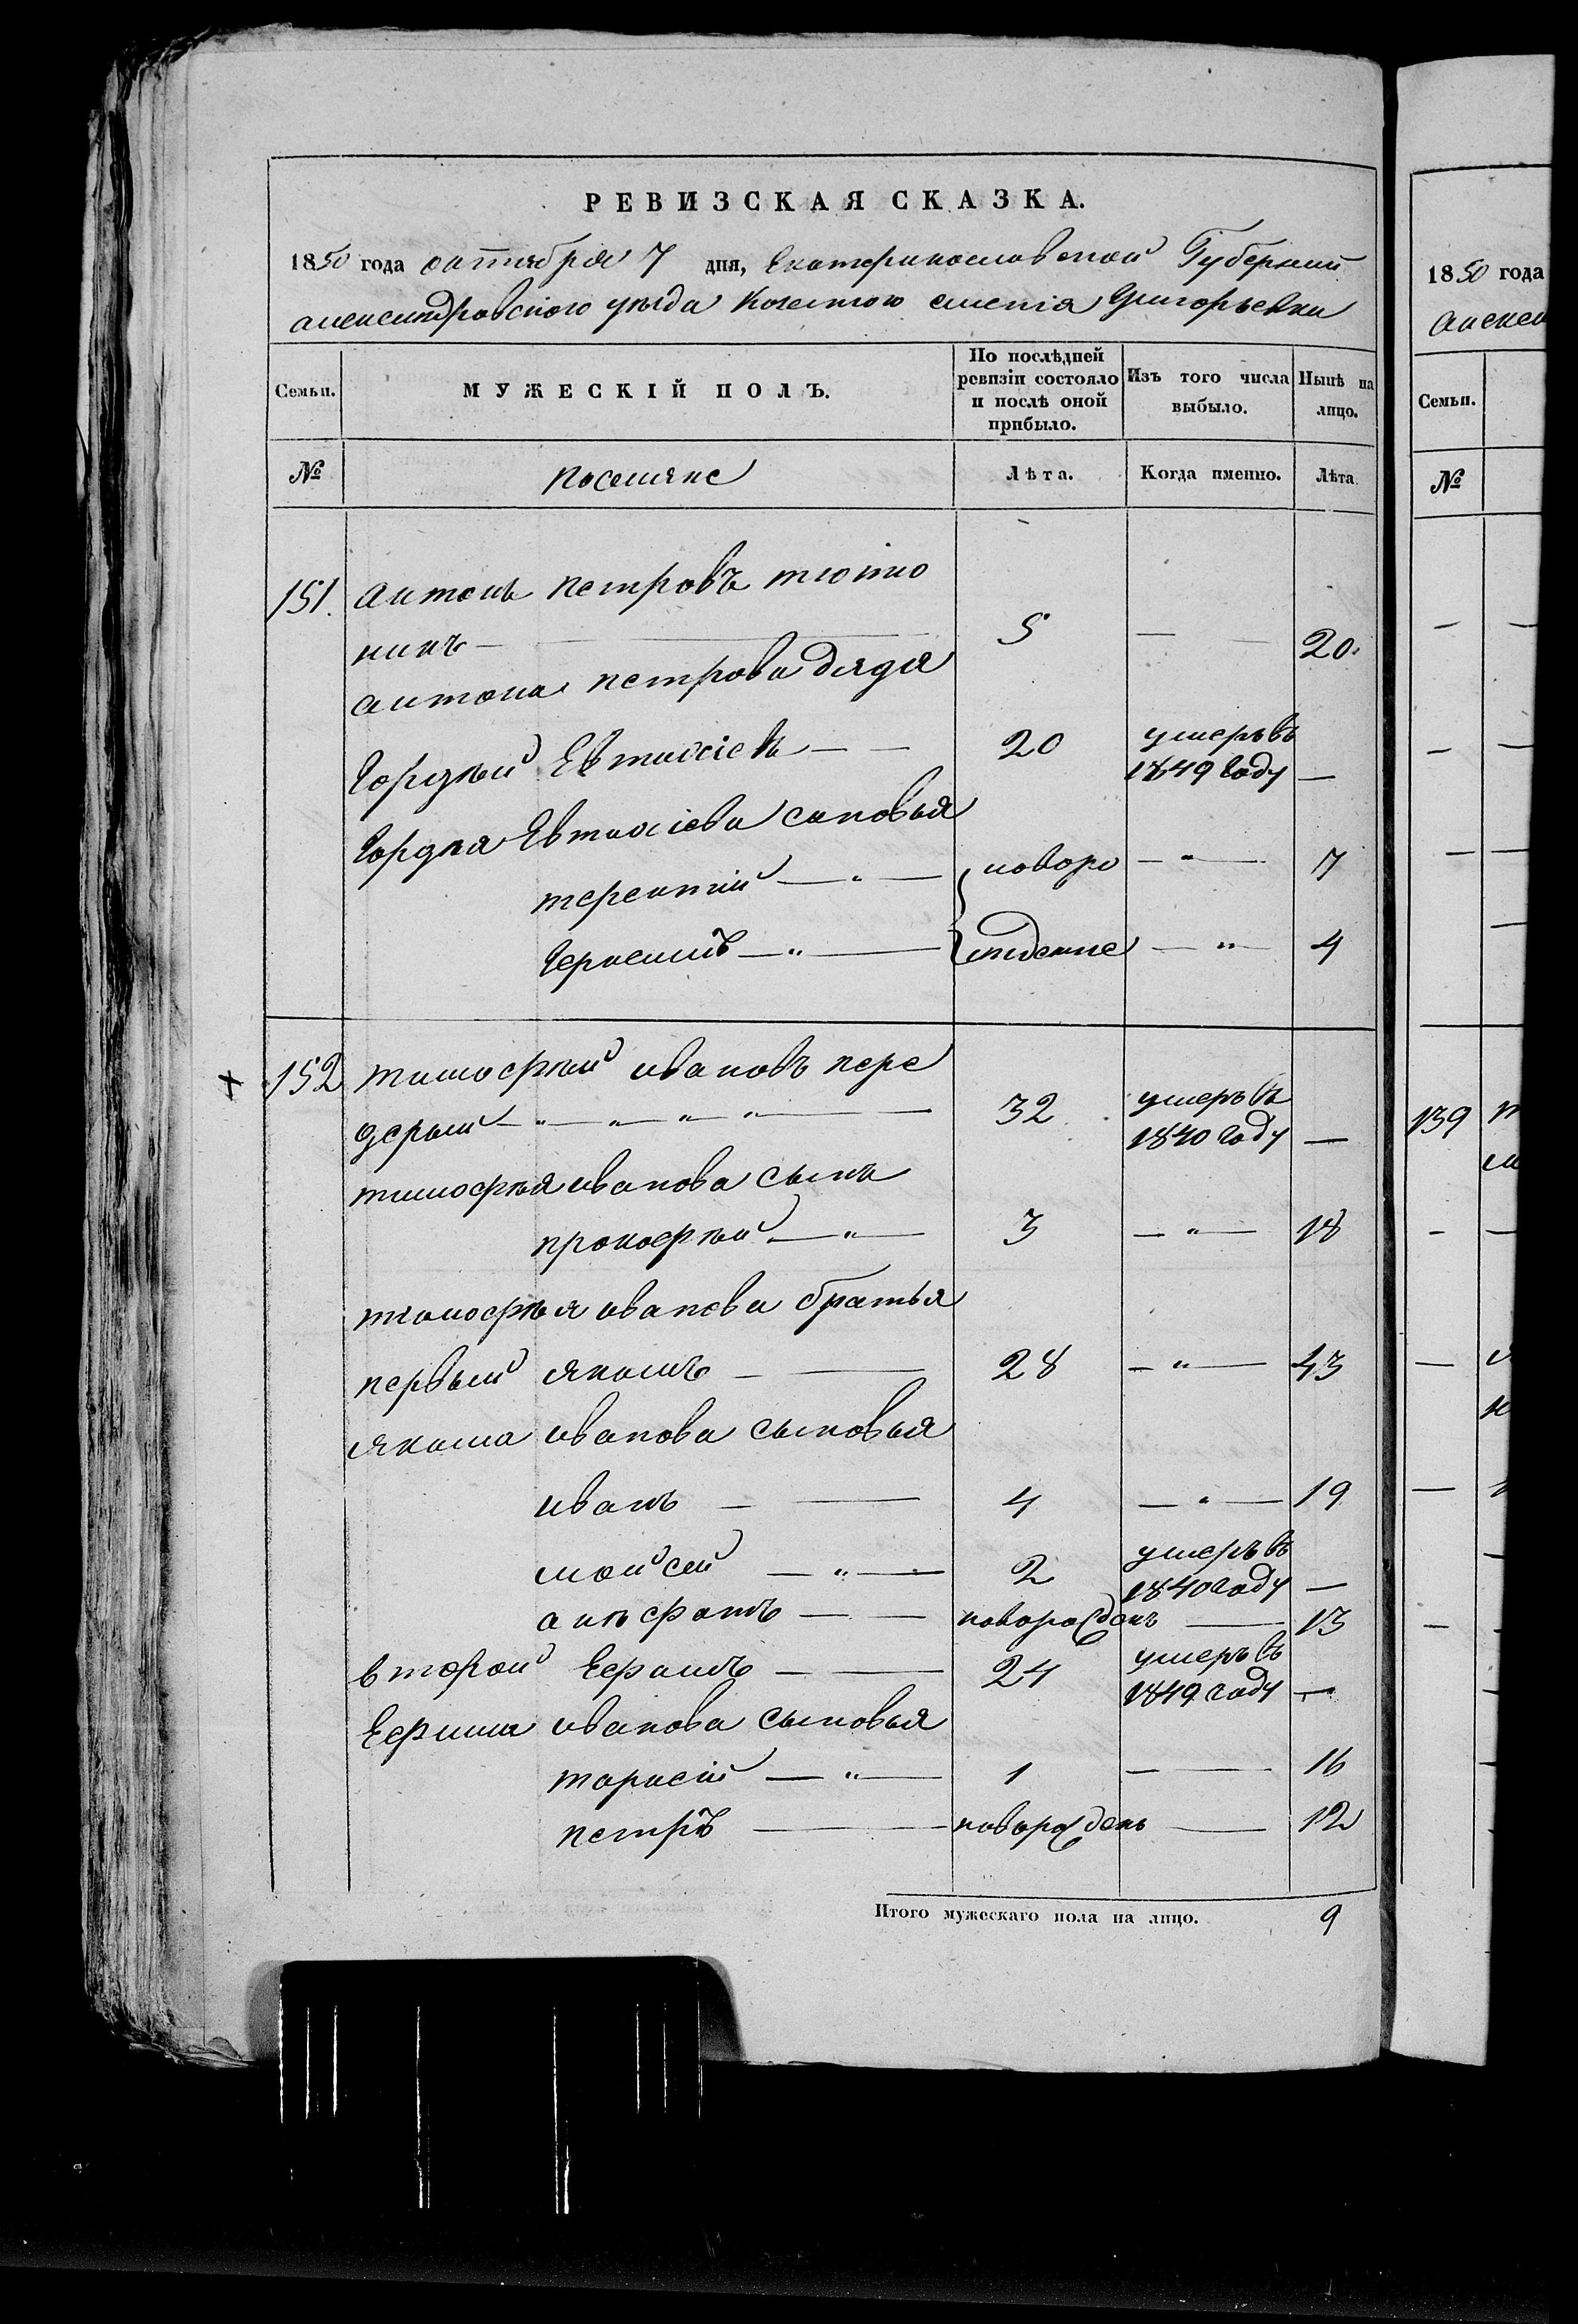 РЕВИЗСКАЯ СКАЗКА.
1850 года октября 7 дня, Екатеринославской Губернии
александровского уезда Казенного селенія Григорьевки
Семьи. МУЖЕСКІЙ ПОЛЪ. По послѣдней ревизіи состояло и послѣ оной прибыло. Изъ того числа выбыло. Нынѣ на лицо.
№ поселяне Лѣта. Когда именно. Лѣта
151. Антонъ петровъ тютю
никъ — 5 — 20.
антона петрова дядя
Гордѣй Евтихіевъ — 20 умеръ въ 1849 году —
Гордѣя Евтихіева сыновья
терентий — " — новоро — " — 7
Герасимъ — " — жденные — " — 4
152 тимофѣй ивановъ пере
дерий — " — " — " — " — 32 умеръ въ 1840 году —
тимофѣя иванова сынъ
прокофѣй — " — 3 — " — 18
тимофѣя иванова братья
первый якимъ — 28 — " — 43
якима иванова сыновья
иванъ — 4 — " — 19
мойсей — " — 2 умеръ въ 1840 году —
новорожденъ — 13
второй Ефимъ — 24 умеръ въ 1849 году —
Ефима иванова сыновья
тарасій — " — 1 — 16
петръ — новорожденъ — 12
Итого мужескаго пола на лицо. 9
1850 года
Алексан
Семьи.
№
139